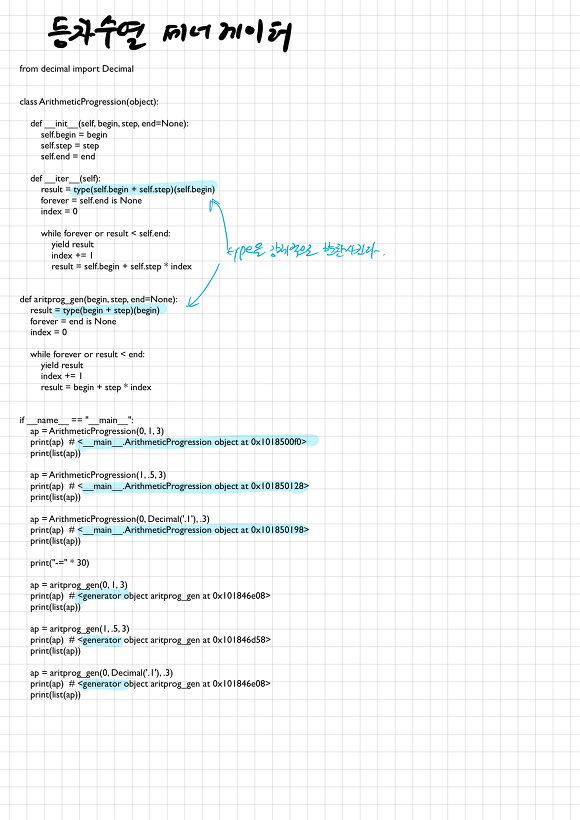 등차수열 제너레이터
from decimal import Decimal
class ArithmeticProgression(object):
def __init__(self, begin, step, end=None):
self.begin = begin
self.step = step
self.end = end
def __iter__(self):
result = type(self.begin + self.step)(self.begin)
forever = self.end is None
index = 0
while forever or result < self.end:
yield result
index += 1
result = self.begin + self.step * index
type을 강제적으로 변환시킨다.
def aritprog_gen(begin, step, end=None):
result = type(begin + step)(begin)
forever = end is None
index = 0
while forever or result < end:
yield result
index += 1
result = begin + step * index
if __name__ == "__main__":
ap = ArithmeticProgression(0, 1, 3)
print(ap)  # <__main__.ArithmeticProgression object at 0x1018500f0>
print(list(ap))
ap = ArithmeticProgression(1, .5, 3)
print(ap)  # <__main__.ArithmeticProgression object at 0x101850128>
print(list(ap))
ap = ArithmeticProgression(0, Decimal('.1'), .3)
print(ap)  # <__main__.ArithmeticProgression object at 0x101850198>
print(list(ap))
print("-=" * 30)
ap = aritprog_gen(0, 1, 3)
print(ap)  # <generator object aritprog_gen at 0x101846e08>
print(list(ap))
ap = aritprog_gen(1, .5, 3)
print(ap)  # <generator object aritprog_gen at 0x101846d58>
print(list(ap))
ap = aritprog_gen(0, Decimal('.1'), .3)
print(ap)  # <generator object aritprog_gen at 0x101846e08>
print(list(ap))